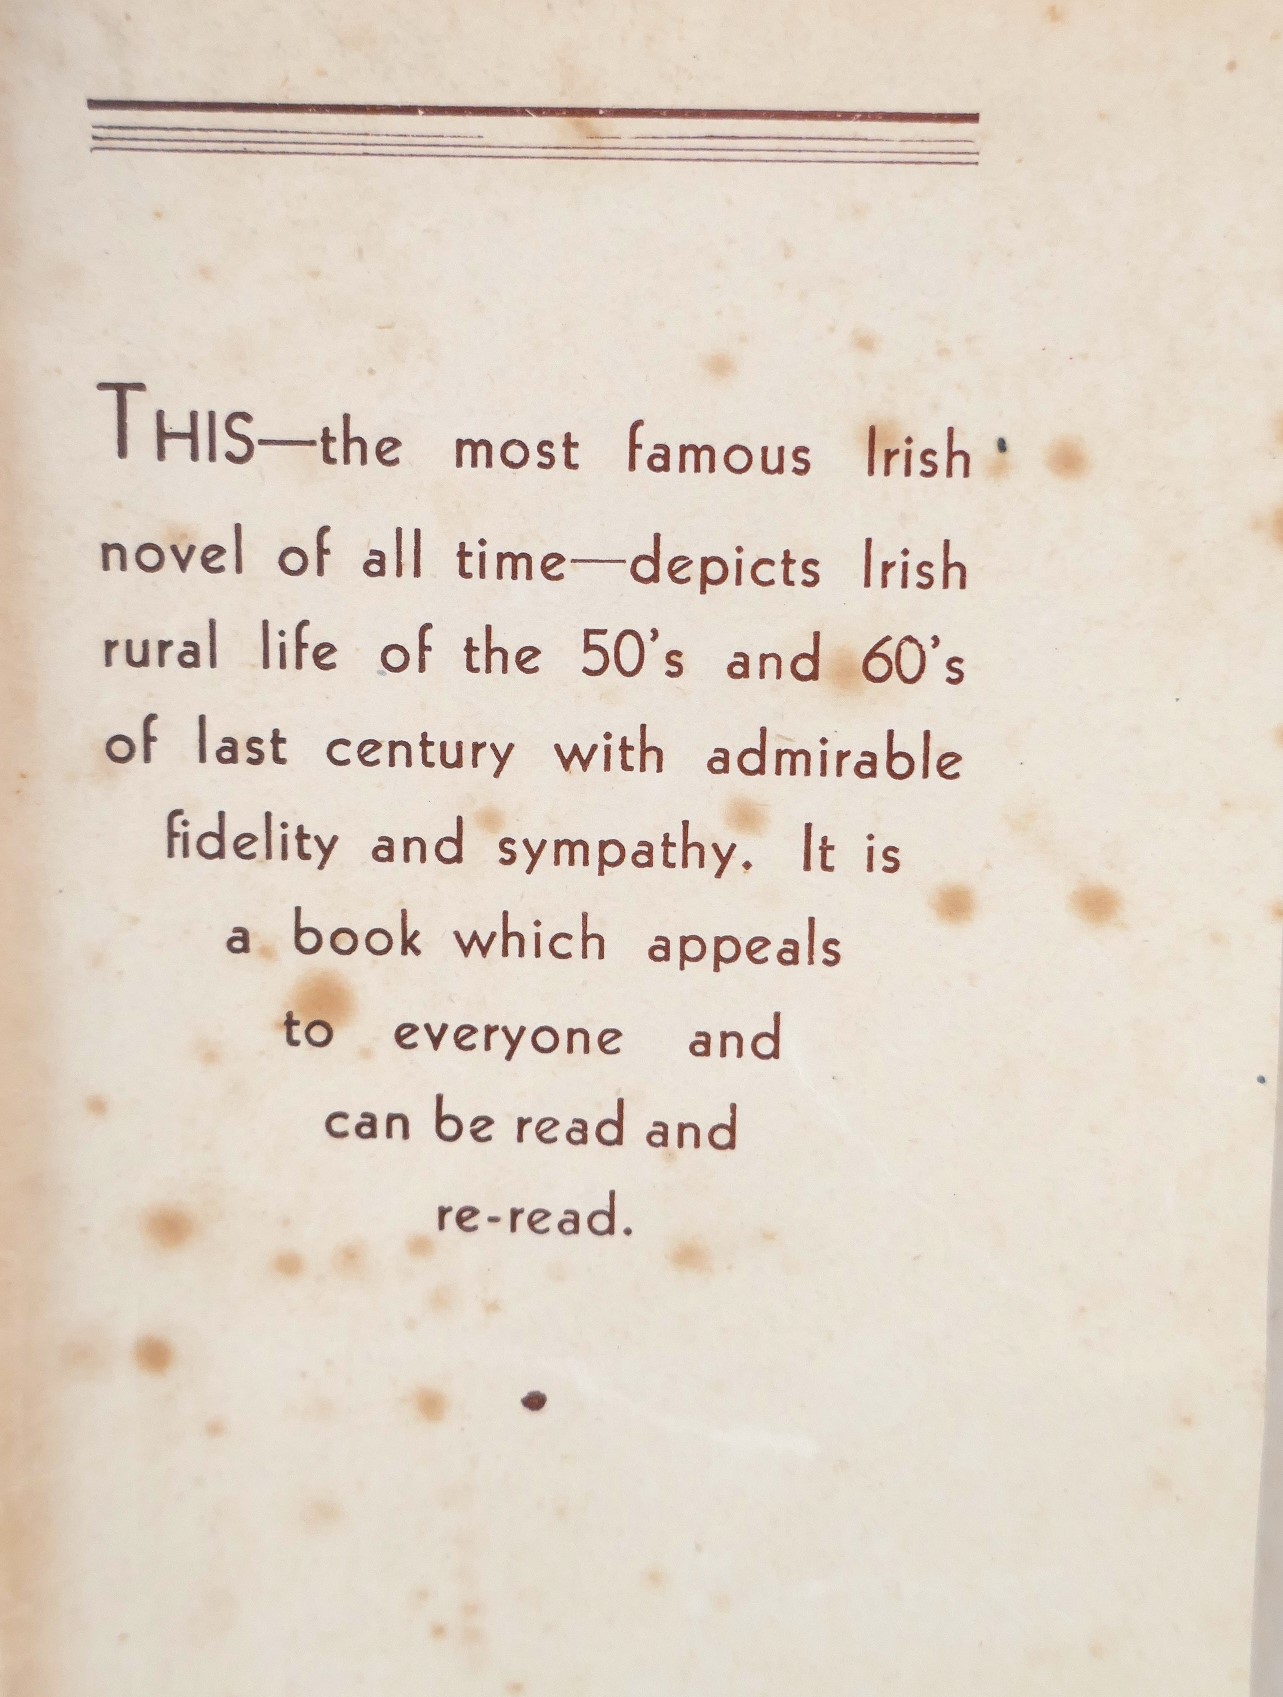 THIS—the most famous Irish
novel of all time—depicts Irish
rural life of the 50's and 60's
of last century with admirable
fidelity and sympathy. It is
a book which appeals
to everyone and
can be read and
re-read.